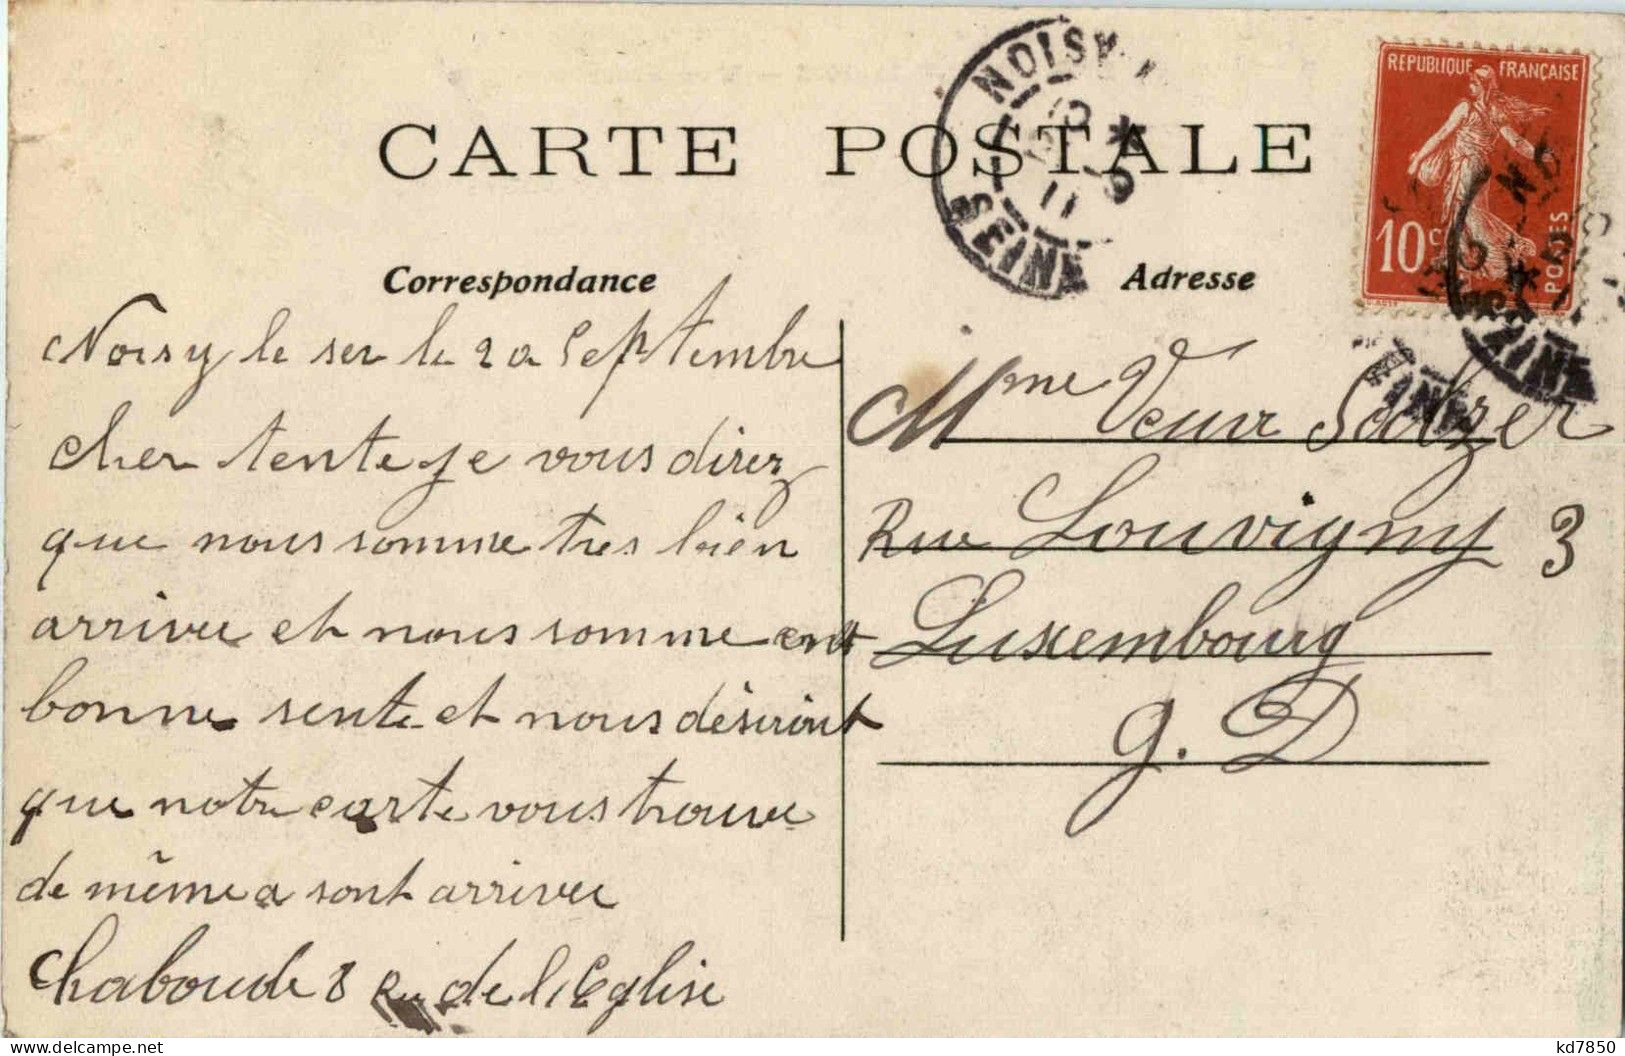 CARTE POSTALE
Correspondance
Adresse
NOISY
11
SEINE
REPUBLIQUE FRANÇAISE
10c
POSTES
Noisy le ser le 20 Septembre
cher tente je vous direz
que nous somme tres bien
arrivee et nous somme ent
bonne sente et nous desiront
que notre carte vous trouve
de même a sont arrivee
Chaboude 8 Ru de l'Eglise
Mme Veuve Salzer
Rue Louvigny 3
Luxembourg
G. D
kd7850